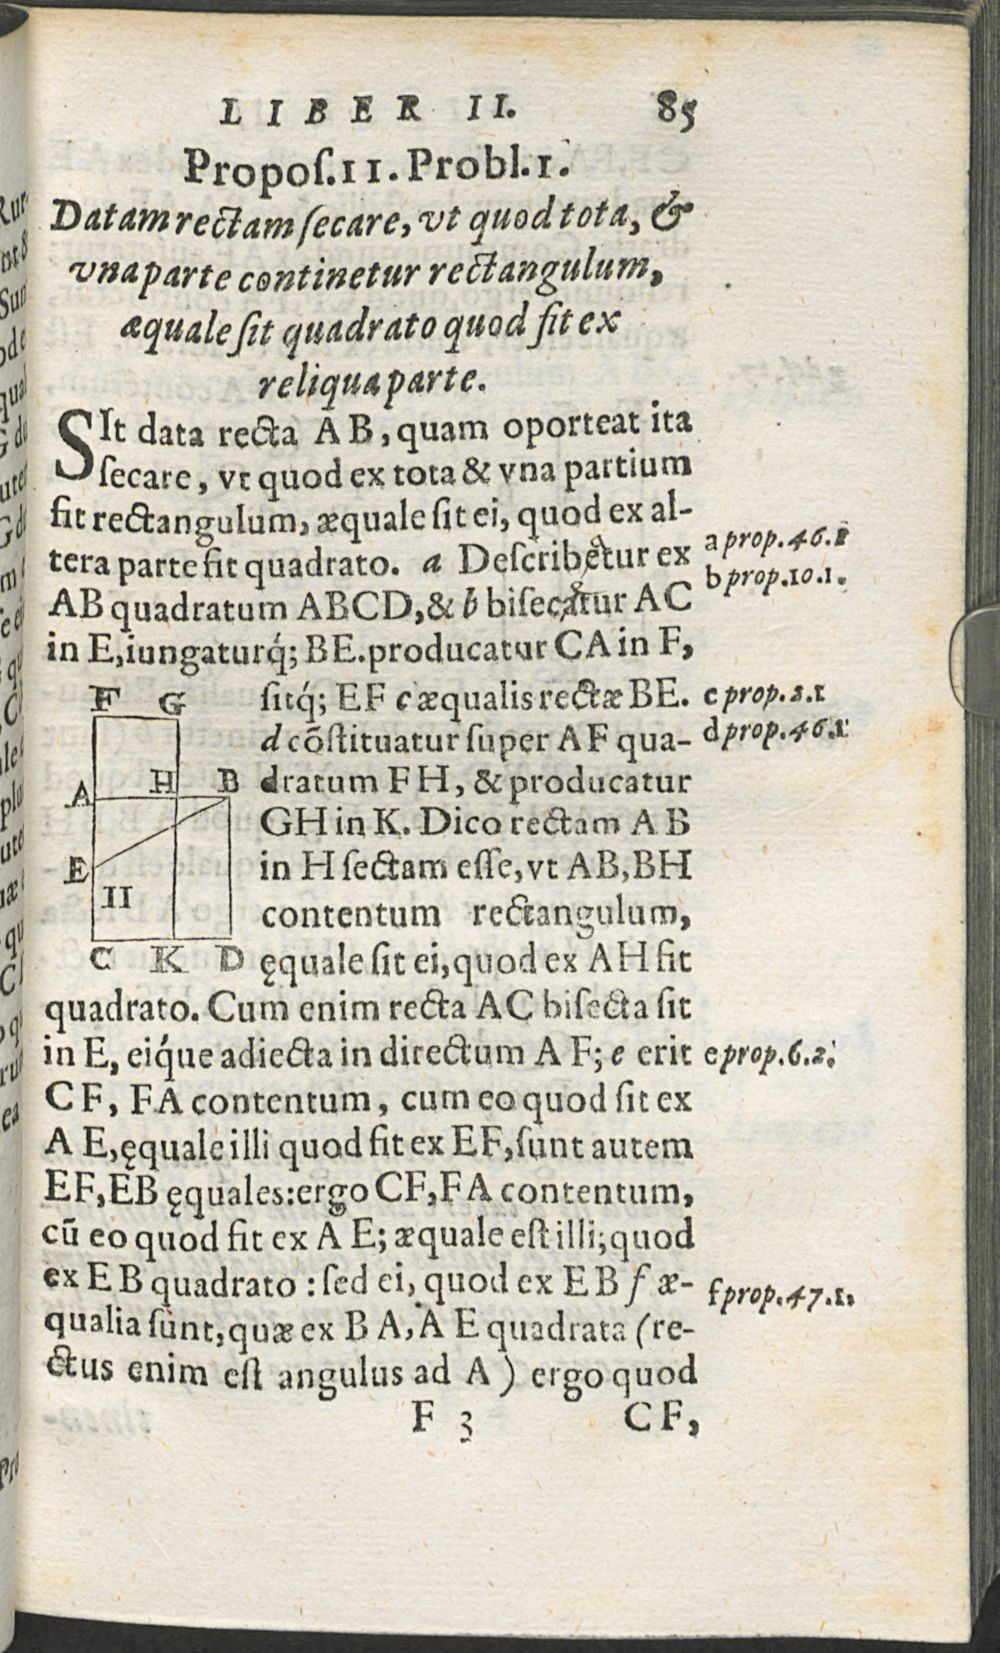 LIBER II. 85
Propoſ.11. Probl.1.
Datam rectam ſecare, vt quod tota, &
vna parte continetur rectangulum,
æquale ſit quadrato quod fit ex
reliqua parte.
SIt data recta AB, quam oporteat ita
ſecare, vt quod ex tota & vna partium
fit rectangulum, æquale ſit ei, quod ex al-
tera parte fit quadrato. a Deſcribatur ex
a prop.46.1
AB quadratum ABCD, & b biſecetur AC
b prop.10.1.
in E, iungaturq́; BE. producatur CA in F,
ſitq́; EF c æqualis rectæ BE.
c prop.2.1
d cõſtituatur ſuper AF qua-
d prop.46.1
dratum FH, & producatur
GH in K. Dico rectam AB
in H ſectam eſſe, vt AB, BH
contentum rectangulum,
ęquale ſit ei, quod ex AH fit
F G
A H B
E
II
C K D
quadrato. Cum enim recta AC biſecta ſit
in E, eiq́ue adiecta in directum AF; e erit
e prop.6.2.
CF, FA contentum, cum eo quod fit ex
AE, ęquale illi quod fit ex EF, ſunt autem
EF, EB ęquales: ergo CF, FA contentum,
cũ eo quod fit ex AE; æquale eſt illi; quod
ex EB quadrato: ſed ei, quod ex EB f æ-
f prop.47.1.
qualia ſunt, quæ ex BA, AE quadrata (re-
ctus enim eſt angulus ad A) ergo quod
F 3 CF,